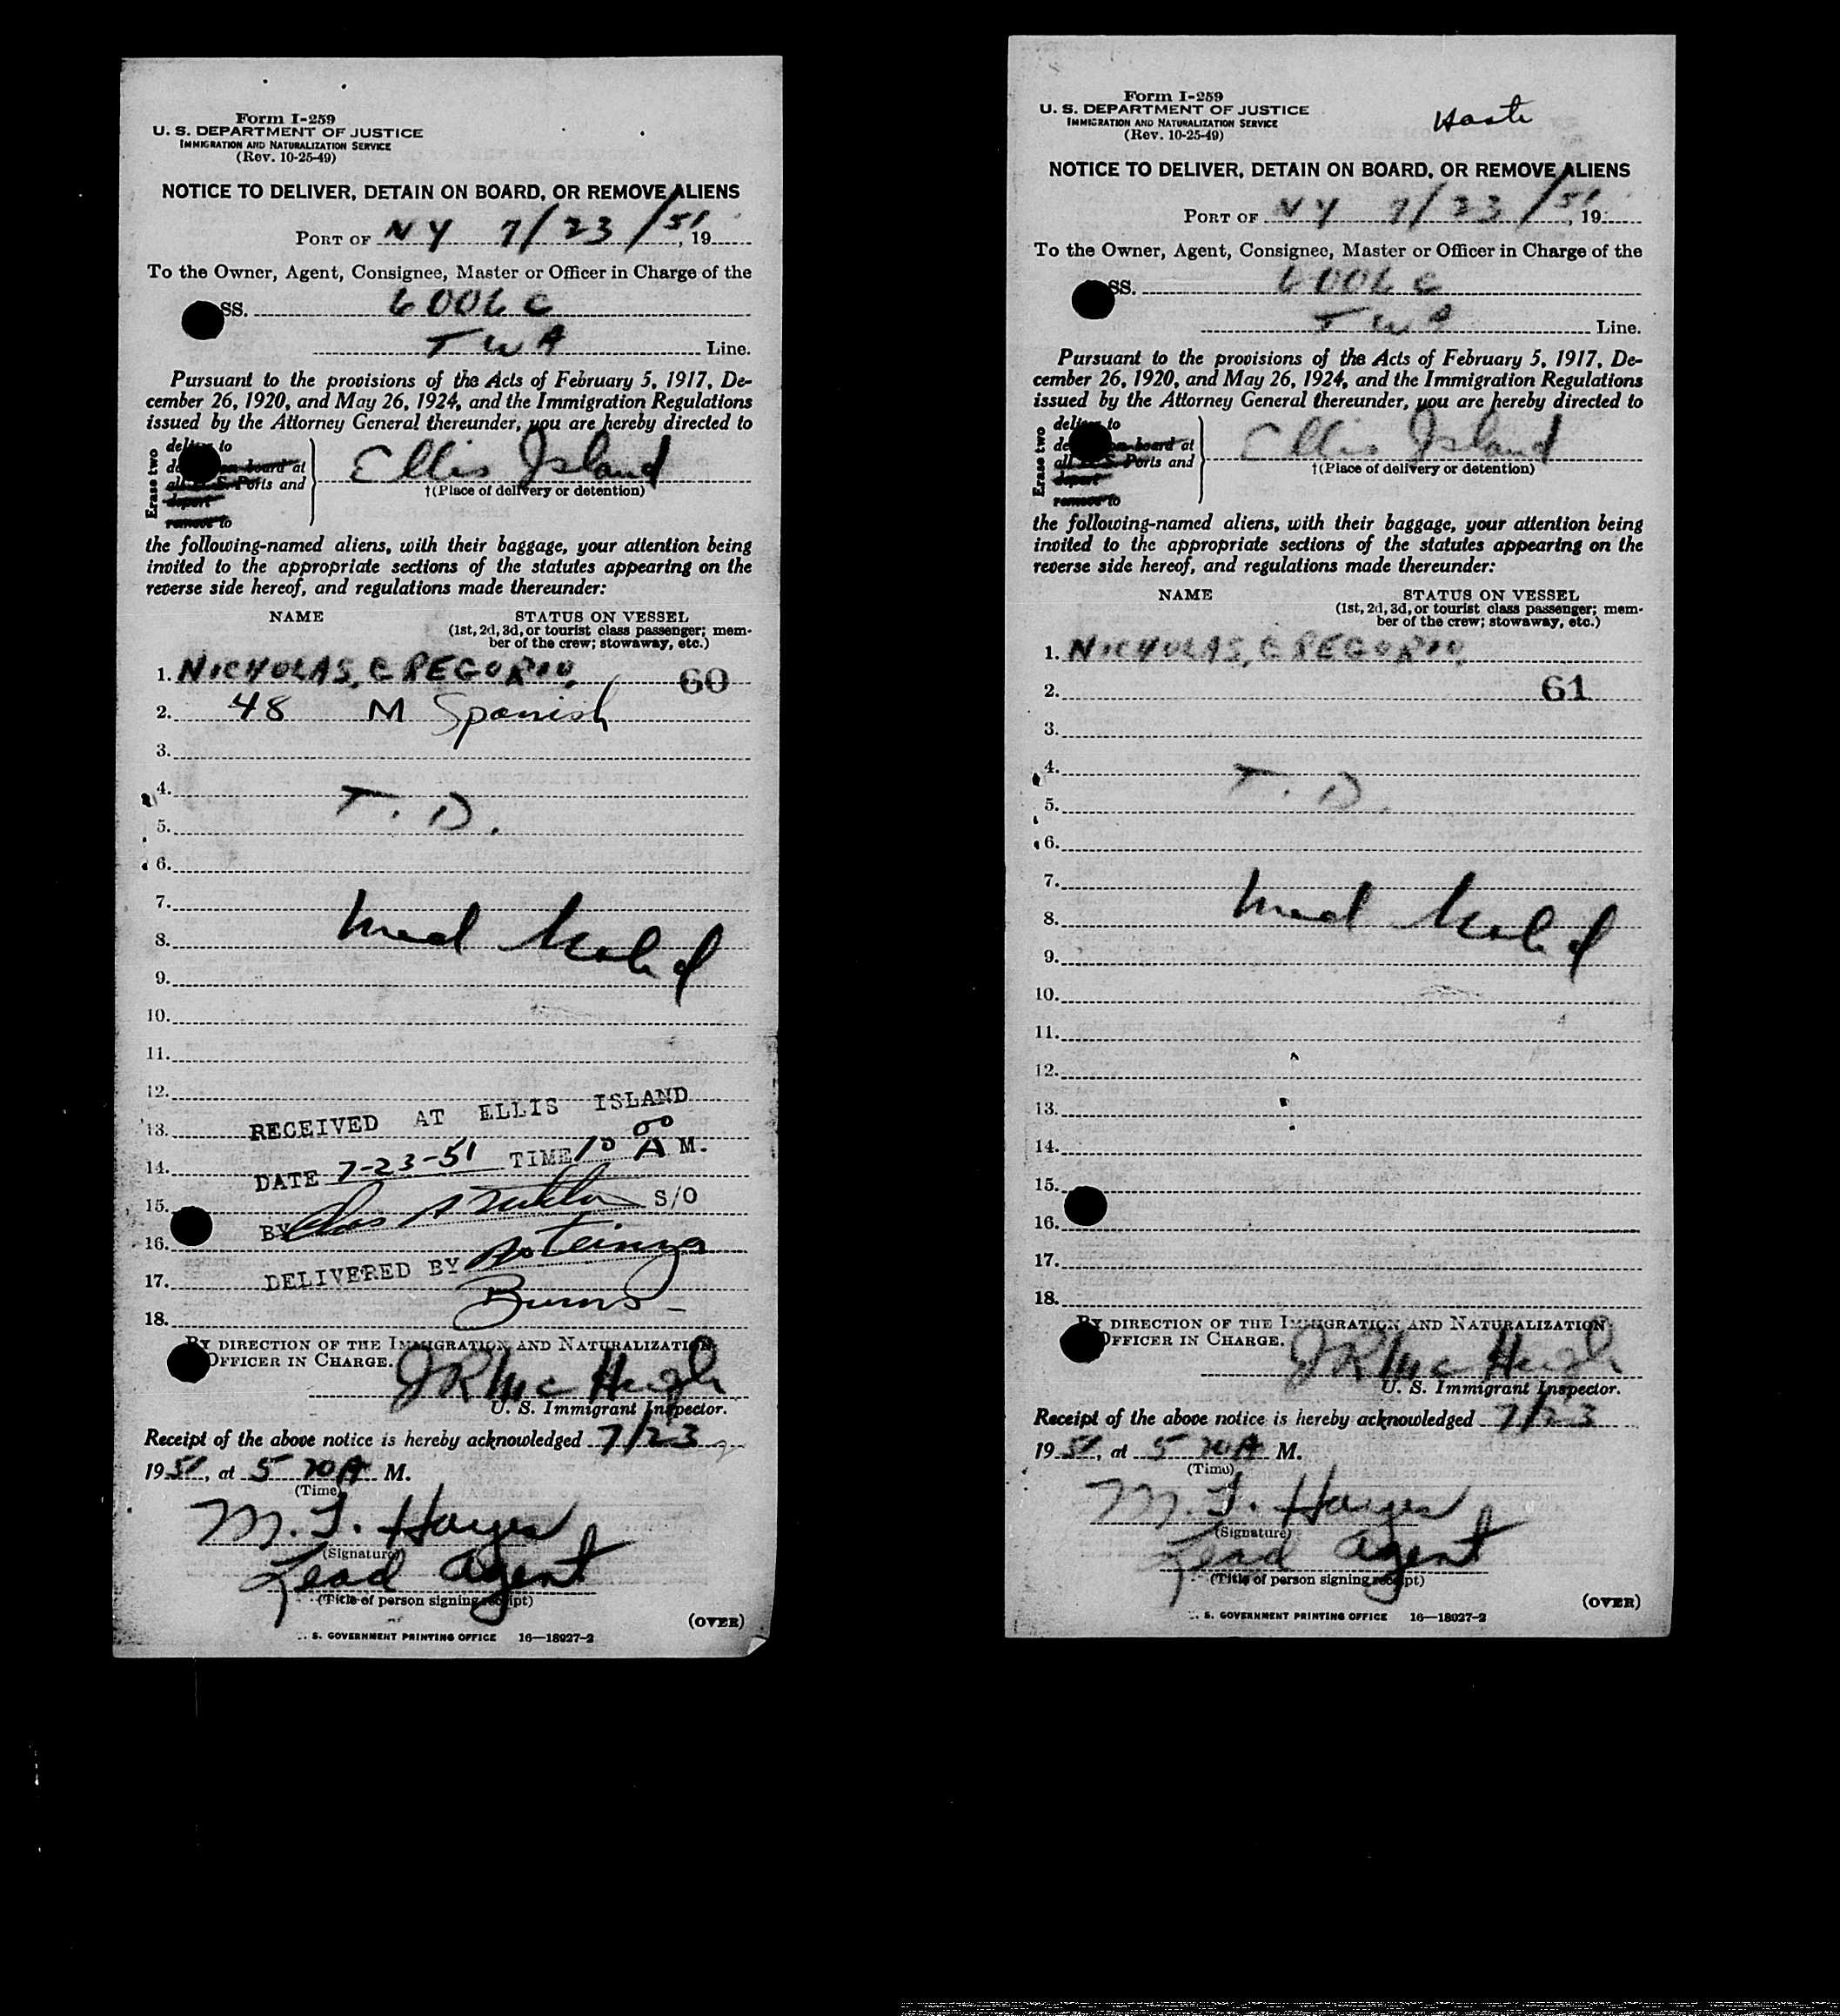 Form I-259
U. S. DEPARTMENT OF JUSTICE
IMMIGRATION AND NATURALIZATION SERVICE
(Rev. 10-25-49)
NOTICE TO DELIVER, DETAIN ON BOARD, OR REMOVE ALIENS
PORT OF NY 7/23/51, 19
To the Owner, Agent, Consignee, Master or Officer in Charge of the
SS. 6006C
TWA Line.
Pursuant to the provisions of the Acts of February 5, 1917, De-
cember 26, 1920, and May 26, 1924, and the Immigration Regulations
issued by the Attorney General thereunder, you are hereby directed to
Erase two
deliver to
on board at
all U. S. Ports and
depart
remove to
Ellis Island
†(Place of delivery or detention)
the following-named aliens, with their baggage, your attention being
invited to the appropriate sections of the statutes appearing on the
reverse side hereof, and regulations made thereunder:
NAME STATUS ON VESSEL
(1st, 2d, 3d, or tourist class passenger; mem-
ber of the crew; stowaway, etc.)
1. NICHOLAS, GREGORIO, 60
2. 48 M Spanish
3.
4. T. D.
5.
6.
7.
8. Med
9.
10.
11.
12.
RECEIVED AT ELLIS ISLAND
13.
14. DATE 7-23-51 TIME 10 00 A M.
15. BY S/O
16.
17. DELIVERED BY
Burns
18.
BY DIRECTION OF THE IMMIGRATION AND NATURALIZATION
OFFICER IN CHARGE.
JR McHugh
U. S. Immigrant Inspector.
Receipt of the above notice is hereby acknowledged 7/23
1951, at 5 20 A M.
(Time)
M. J. Hayes
(Signature)
Lead Agent
(Title of person signing receipt)
(OVER)
S. GOVERNMENT PRINTING OFFICE 16—18927-2
Form I-259
U. S. DEPARTMENT OF JUSTICE
IMMIGRATION AND NATURALIZATION SERVICE
(Rev. 10-25-49)
NOTICE TO DELIVER, DETAIN ON BOARD, OR REMOVE ALIENS
PORT OF NY 7/23/51, 19
To the Owner, Agent, Consignee, Master or Officer in Charge of the
SS. 6006C
TWA Line.
Pursuant to the provisions of the Acts of February 5, 1917, De-
cember 26, 1920, and May 26, 1924, and the Immigration Regulations
issued by the Attorney General thereunder, you are hereby directed to
Erase two
deliver to
on board at
all U. S. Ports and
depart
remove to
Ellis Island
†(Place of delivery or detention)
the following-named aliens, with their baggage, your attention being
invited to the appropriate sections of the statutes appearing on the
reverse side hereof, and regulations made thereunder:
NAME STATUS ON VESSEL
(1st, 2d, 3d, or tourist class passenger; mem-
ber of the crew; stowaway, etc.)
1. NICHOLAS, GREGORIO,
2. 61
3.
4. T. D.
5.
6.
7.
8. Med
9.
10.
11.
12.
13.
14.
15.
16.
17.
18.
BY DIRECTION OF THE IMMIGRATION AND NATURALIZATION
OFFICER IN CHARGE.
JR McHugh
U. S. Immigrant Inspector.
Receipt of the above notice is hereby acknowledged 7/23
1951, at 5 20 A M.
(Time)
M. J. Hayes
(Signature)
Lead Agent
(Title of person signing receipt)
(OVER)
S. GOVERNMENT PRINTING OFFICE 16—18927-2